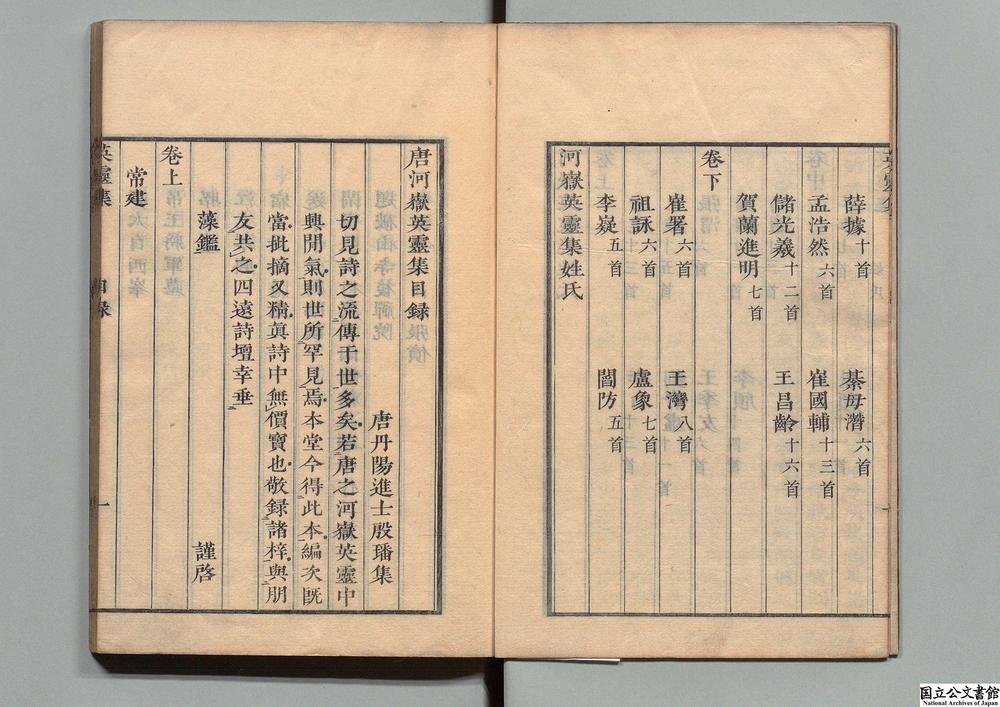 薛據十首 綦毋潛六首
孟浩然六首 崔國輔十三首
儲光羲十二首 王昌齡十六首
賀蘭進明七首
卷下
崔署六首 王灣八首
祖詠六首 盧象七首
李嶷五首 閻防五首
河嶽英靈集姓氏
唐河嶽英靈集目録
唐丹陽進士殷璠集
切見詩之流傳于世多矣若唐之河嶽英靈中
興閒氣則世所罕見焉本堂今得此本編次旣
當批摘又精眞詩中無價寶也敬録諸梓與朋
友共之四遠詩壇幸垂
藻鑑 謹啓
卷上
常建
英靈集 目録 一
国立公文書館
National Archives of Japan